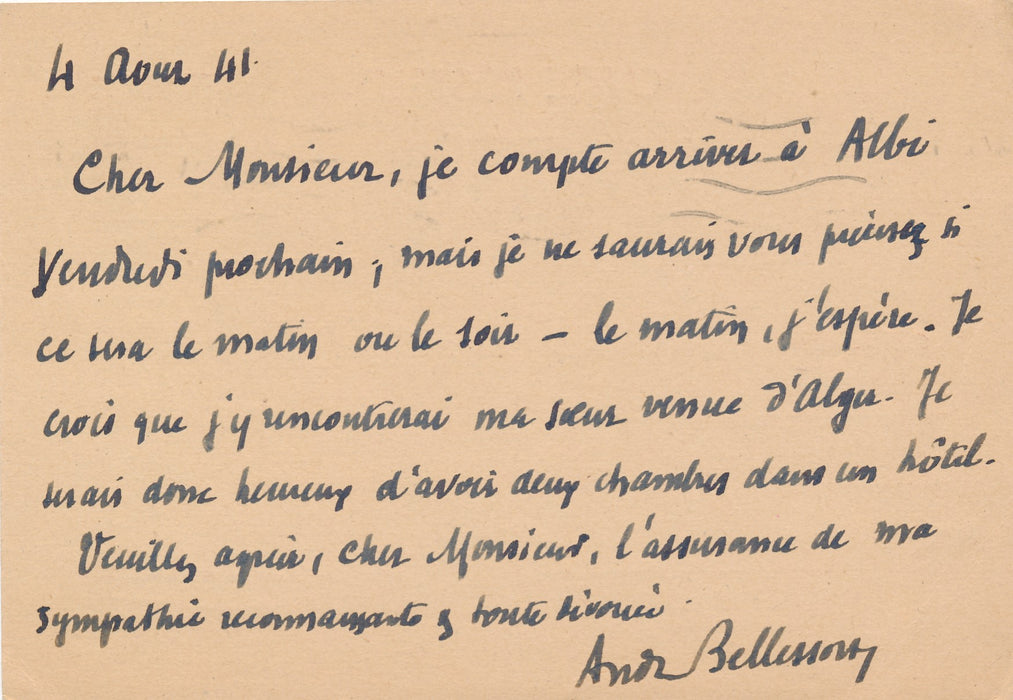 4 Aout 41.
Cher Monsieur, je compte arriver à Albi
Vendredi prochain ; mais je ne saurais vous préciser si
ce sera le matin ou le soir – le matin, j'espère. Je
crois que j'y rencontrerai ma sœur venue d'Alger. Je
serais donc heureux d'avoir deux chambres dans un hôtel.
Veuillez agréer, cher Monsieur, l'assurance de ma
sympathie reconnaissante & toute dévouée.
André Bellessort